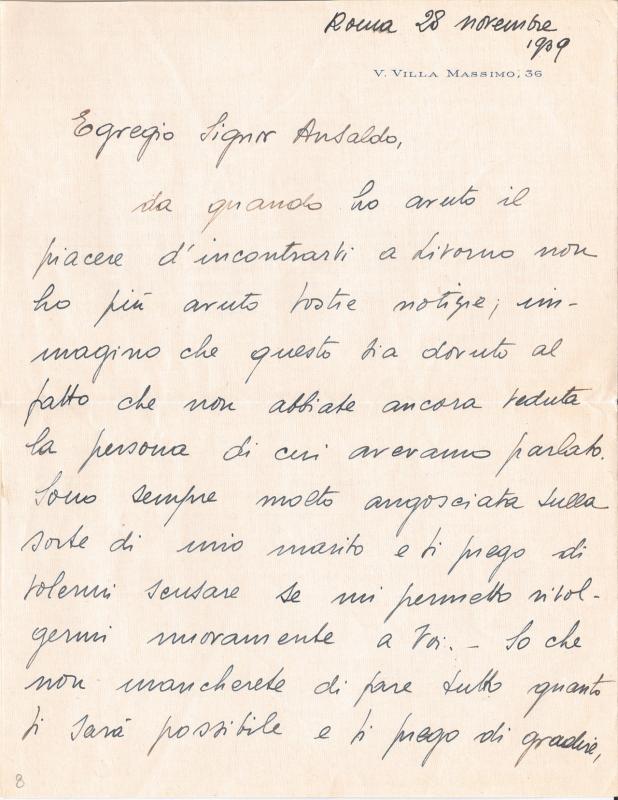 Roma 28 novembre
1939
V. VILLA MASSIMO, 36
Egregio Signor Ansaldo,
da quando ho avuto il
piacere d'incontrarvi a Livorno non
ho più avuto vostre notizie; im-
magino che questo sia dovuto al
fatto che non abbiate ancora veduta
la persona di cui avevamo parlato.
Sono sempre molto angosciata sulla
sorte di mio marito e vi prego di
volermi scusare se mi permetto rivol-
germi nuovamente a Voi. - So che
non mancherete di fare tutto quanto
vi sarà possibile e vi prego di gradire,
8